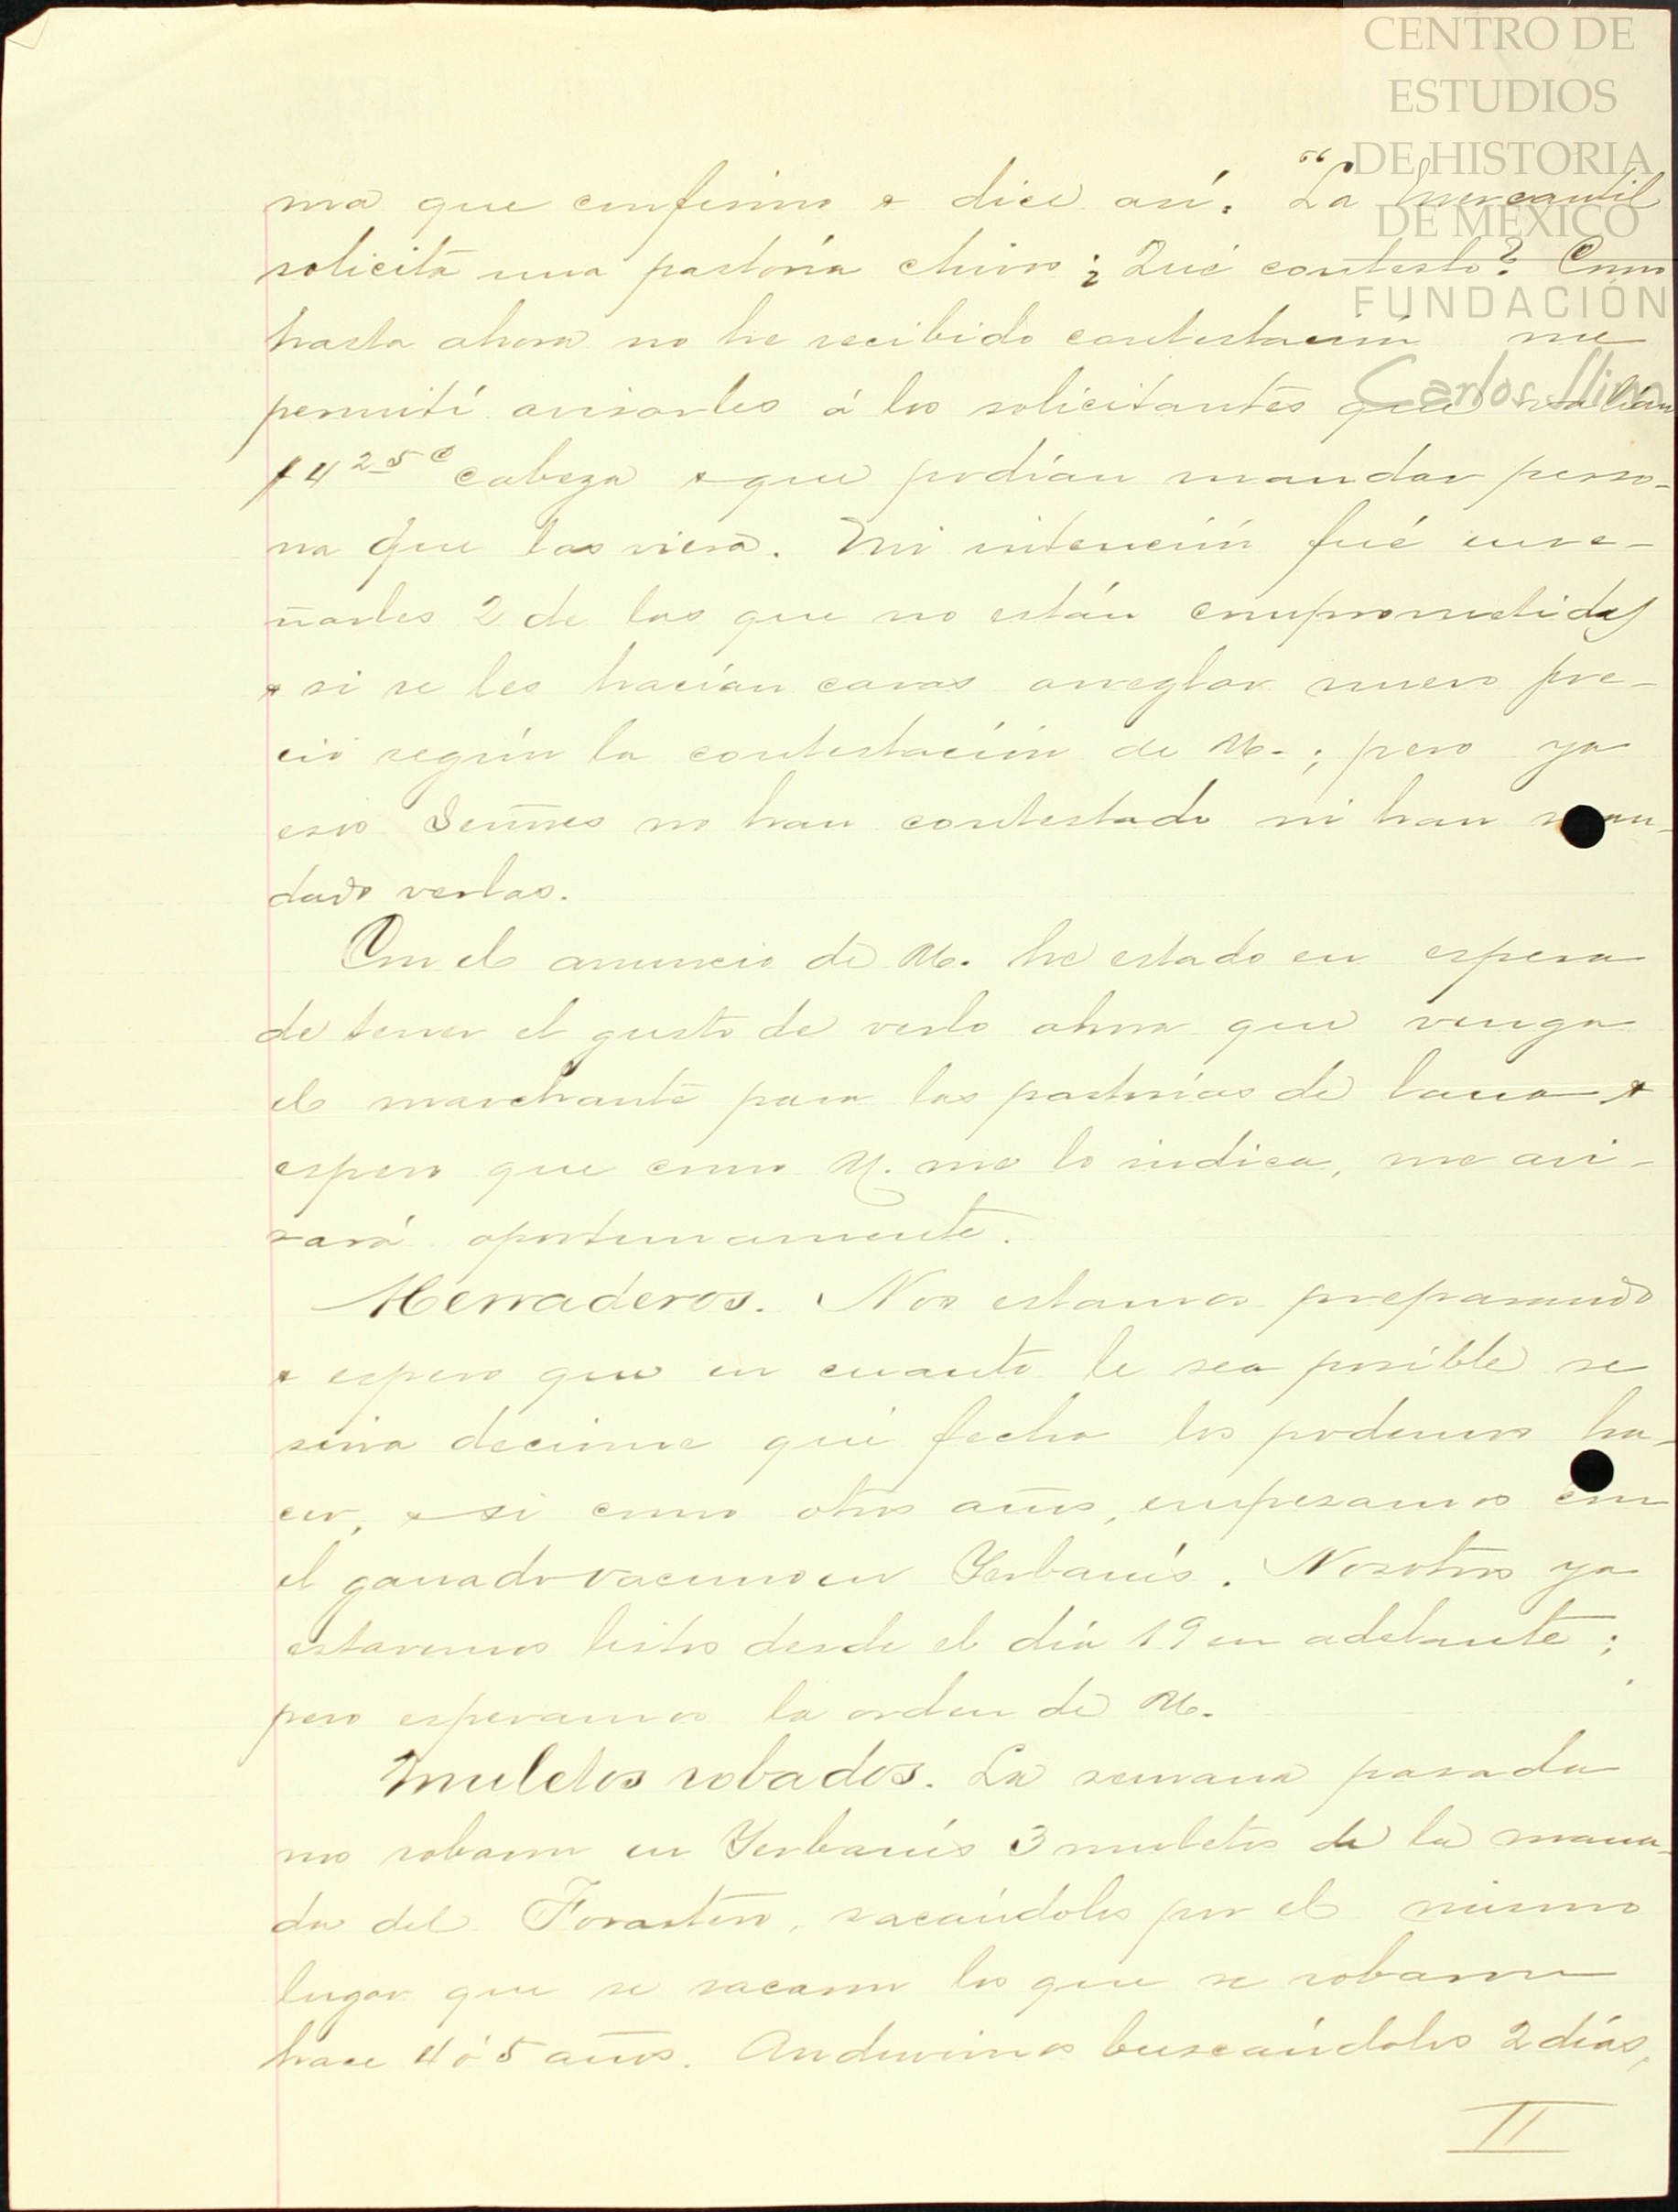 CENTRO DE
ESTUDIOS
DE HISTORIA
DE MÉXICO
FUNDACIÓN
Carlos Slim
ma que confirmo & dice así. "La Mercantil
solicita una pastoría chivos ¿Qué contesto? Como
hasta ahora no he recibido contestación me
permití avisarles á los solicitantes que valían
$4 25 c cabeza & que podían mandar perso-
na que las viera. Mi intención fué ense-
ñarles 2 de las que no están comprometidas
& si se les hacían caras arreglar nuevo pre-
cio según la contestación de U.; pero ya
esos Señores no han contestado ni han man-
dado verlas.
Con el anuncio de U. he estado en espera
de tener el gusto de verlo ahora que venga
el marchante para las pastorías de lana &
espero que como U. me lo indica, me avi-
sará oportunamente.
Herraderos. Nos estamos preparando
& espero que en cuanto le sea posible se
sirva decirme qué fecha los podemos ha-
cer, & si como otros años, empesamos con
el ganado vacuno en Yerbanís. Nosotros ya
estaremos listos desde el día 19 en adelante;
pero esperamos la orden de U.
Muletos robados. La semana pasada
nos robaron en Yerbanís 3 muletos de la mana-
da del Forastero, sacándolos por el mismo
lugar que se sacaron los que se robaron
hace 4 ó 5 años. Anduvimos buscándolos 2 días,
II